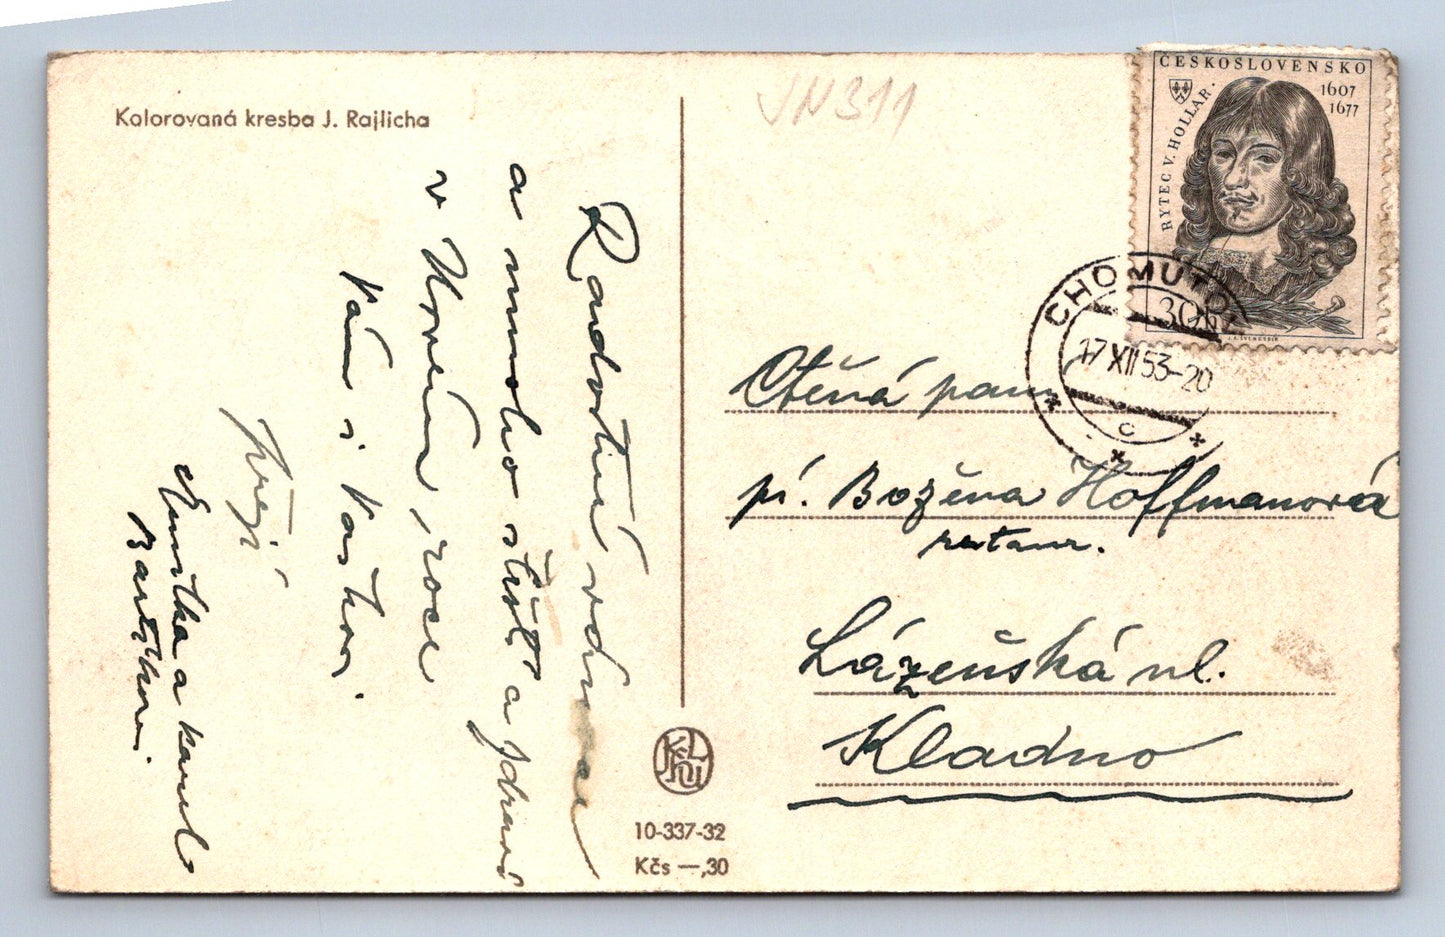 Kolorovaná kresba J. Rajlicha
JN311
ČESKOSLOVENSKO
1607
1677
RYTEC V. HOLLAR.
30h
CHOMUTOV
17 XII 53-20
c
Radostné vánoce
a mnoho štěstí a zdraví
v Novém roce
Vám i
přejí
Emilka a Kamil
Ctěná paní
pí. Božena Hoffmanová
restaur.
Lázeňská ul.
Kladno
10-337-32
Kčs —,30